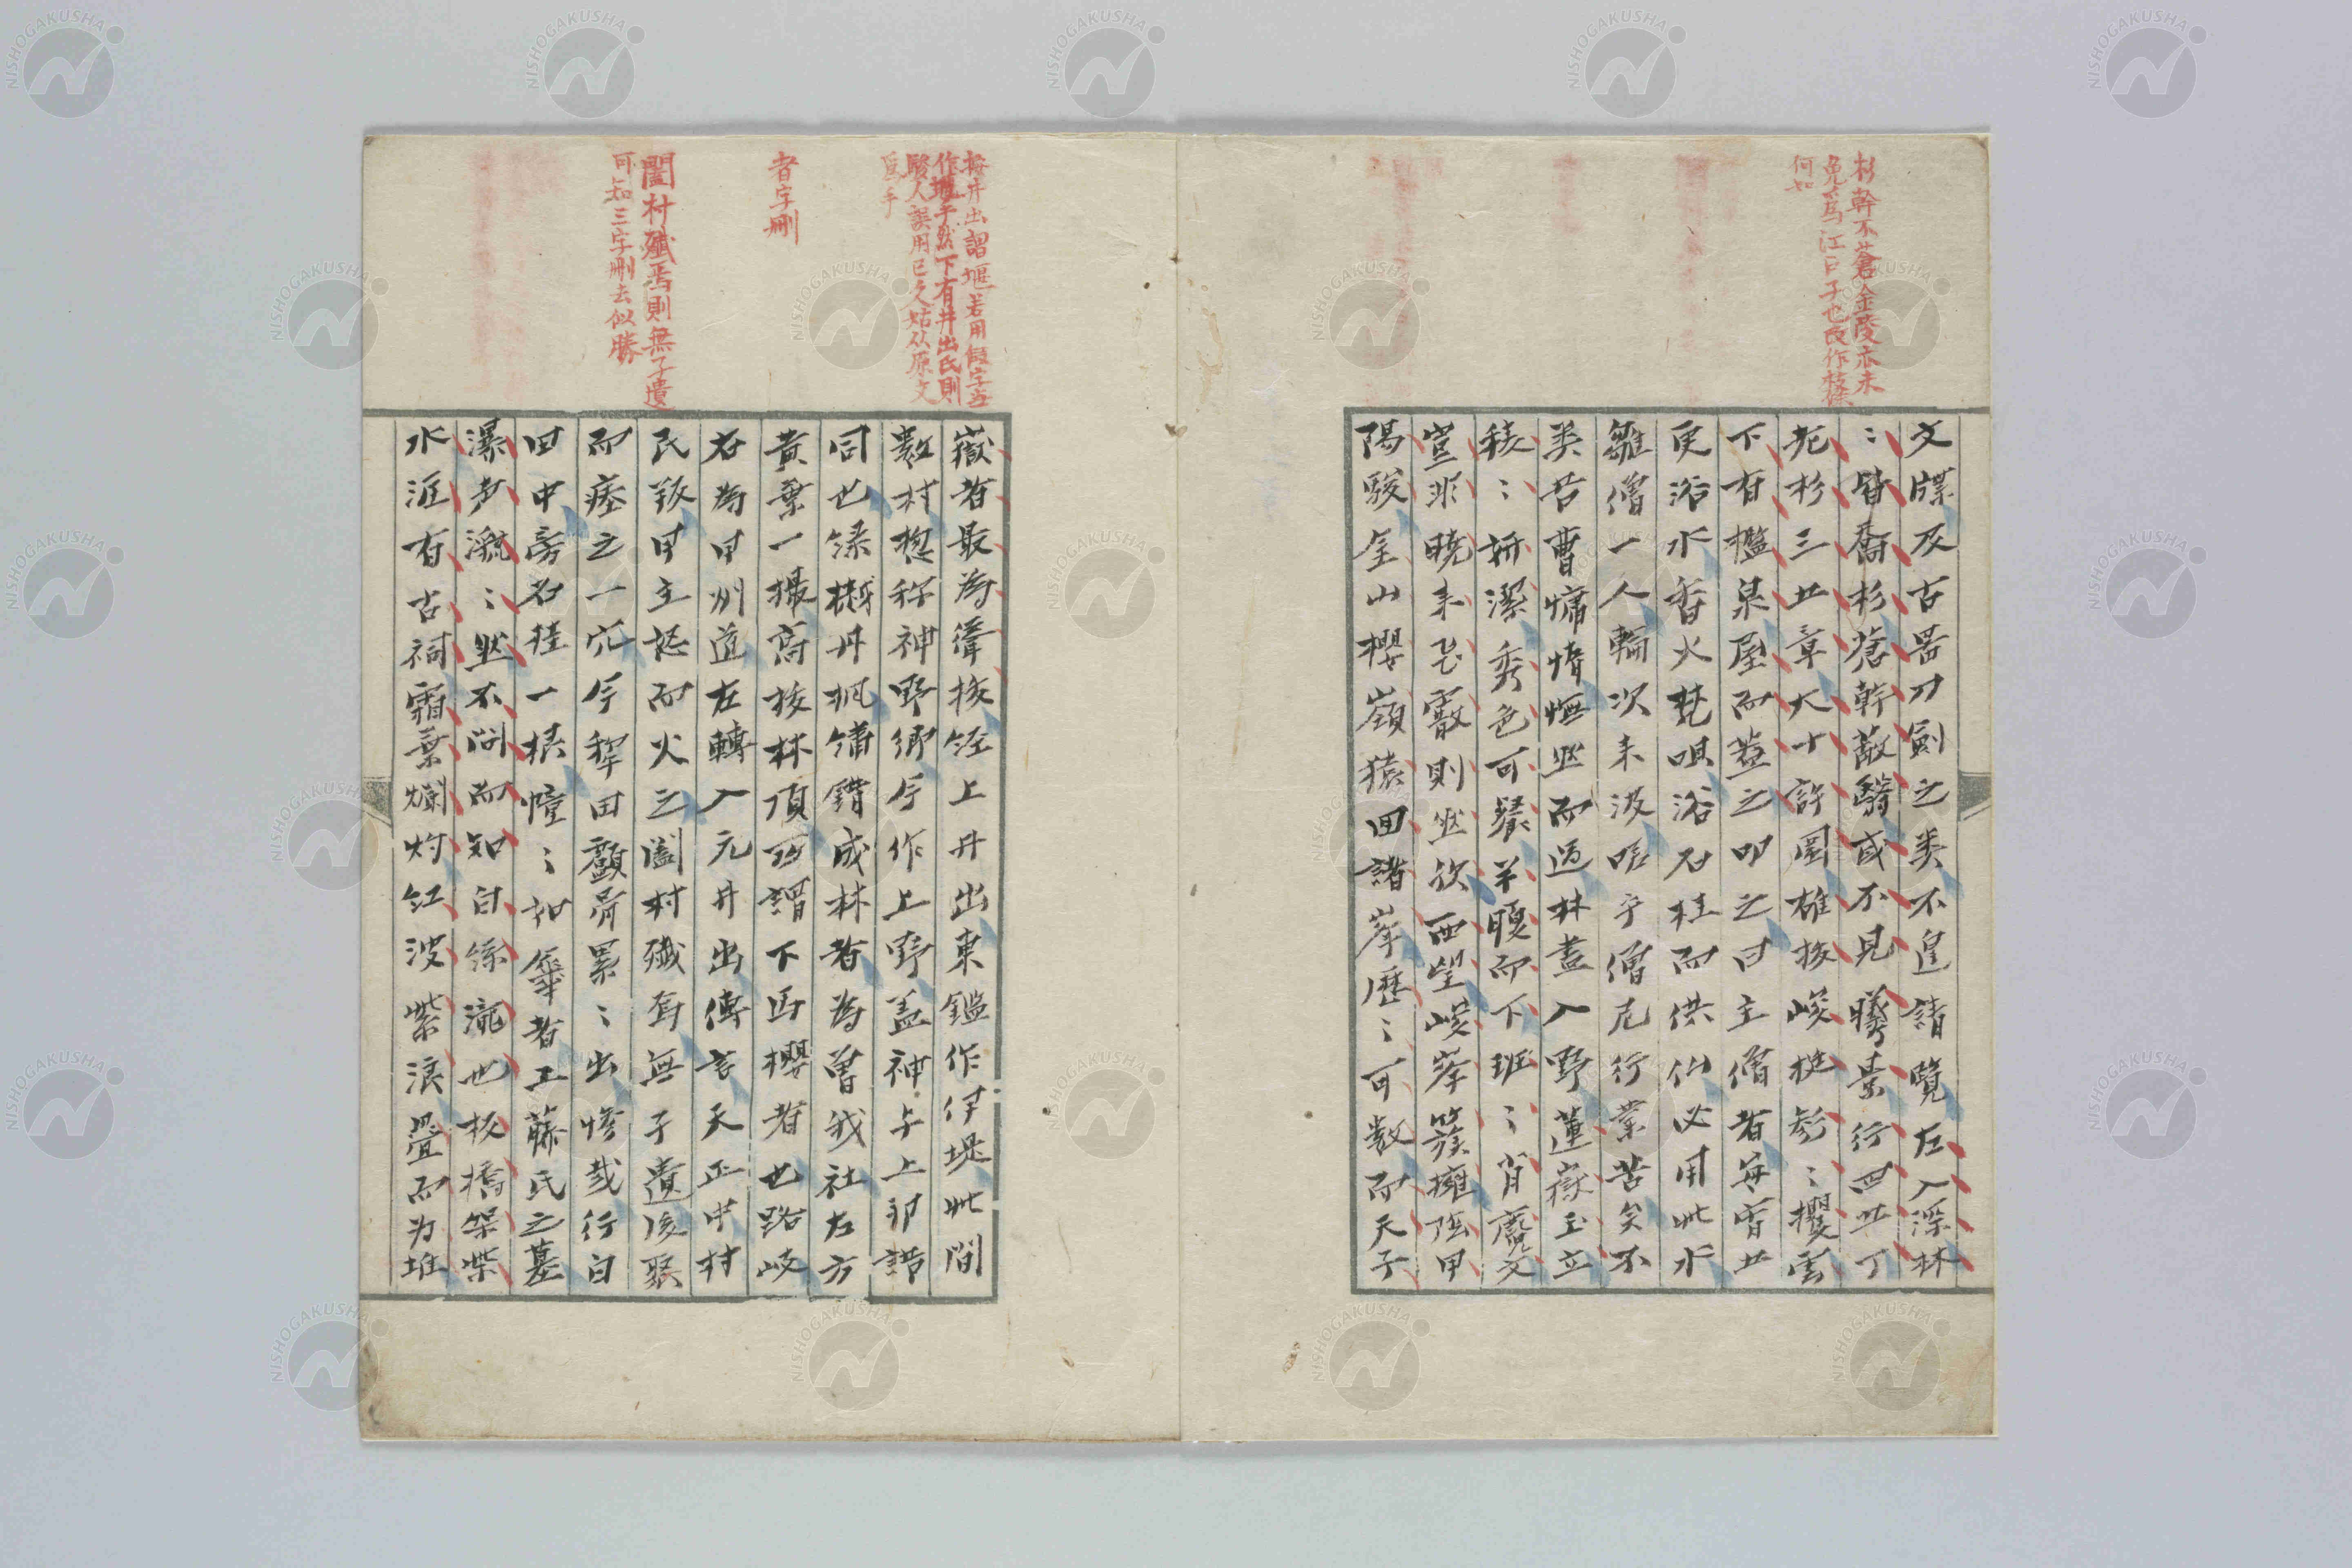 杉幹不蒼金陵亦未
免為江口子也改作枝條
何如
文牒及古器刀劍之类不遑請覽左入深林
〻皆喬杉蒼幹蔽翳或不見曦景行四五丁
老杉三五章大十許圍雄拔峻挺彭〻攖雲
下有檻泉屋而蓋之叩之曰主僧者每宵五
更浴水香火梵唄浴石柱而供仙必用此水
雛僧一人輪次来汲唔乎僧尼行業苦矣不
类吾曹慵惰憮然而過林盡入野蓮嶽玉立
稜〻妍潔秀色可餐羊腹而下班〻肖麂文
豈非曉来飞霰則然欤西望峻峯簇擁隂甲
陽駿金山櫻嶺猿田諸峯歷〻可数而天子
梅井出詔堰若用假字当
作堰手然下有井出氏則
駿人誤用已久姑从原文
為手
者字刪
闔村殲焉則無孑遺
可知三字刪去似勝
嶽者最為聳拔經上井出東鑑作伊堤此間
數村揔称神野鄉今作上野盖神与上邦語
同也緑樾丹枫繍錯成林者為曽我社左方
黄葉一撮高拔林頂西謂下馬櫻者也路岐
右為甲州道左轉入元井出傳言天正中村
民叛甲主怒而火之闔村殲焉無孑遺後聚
而瘞之一穴今犂田髗骨累〻出惨哉行白
田中旁右桂一株幢〻如傘者工藤氏之墓
瀑声㶁〻然不问而知白絲瀧也板橋架柴
水涯有古祠霜葉爛灼红波紫浪疊而为堆